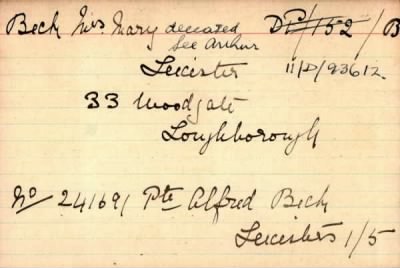 Beck Mrs Mary deceased DP/152/B
See Arthur
Leicester 11/D/93612.
33 Woodgate
Loughborough
No 241691 Pte Alfred Beck
Leicesters 1/5